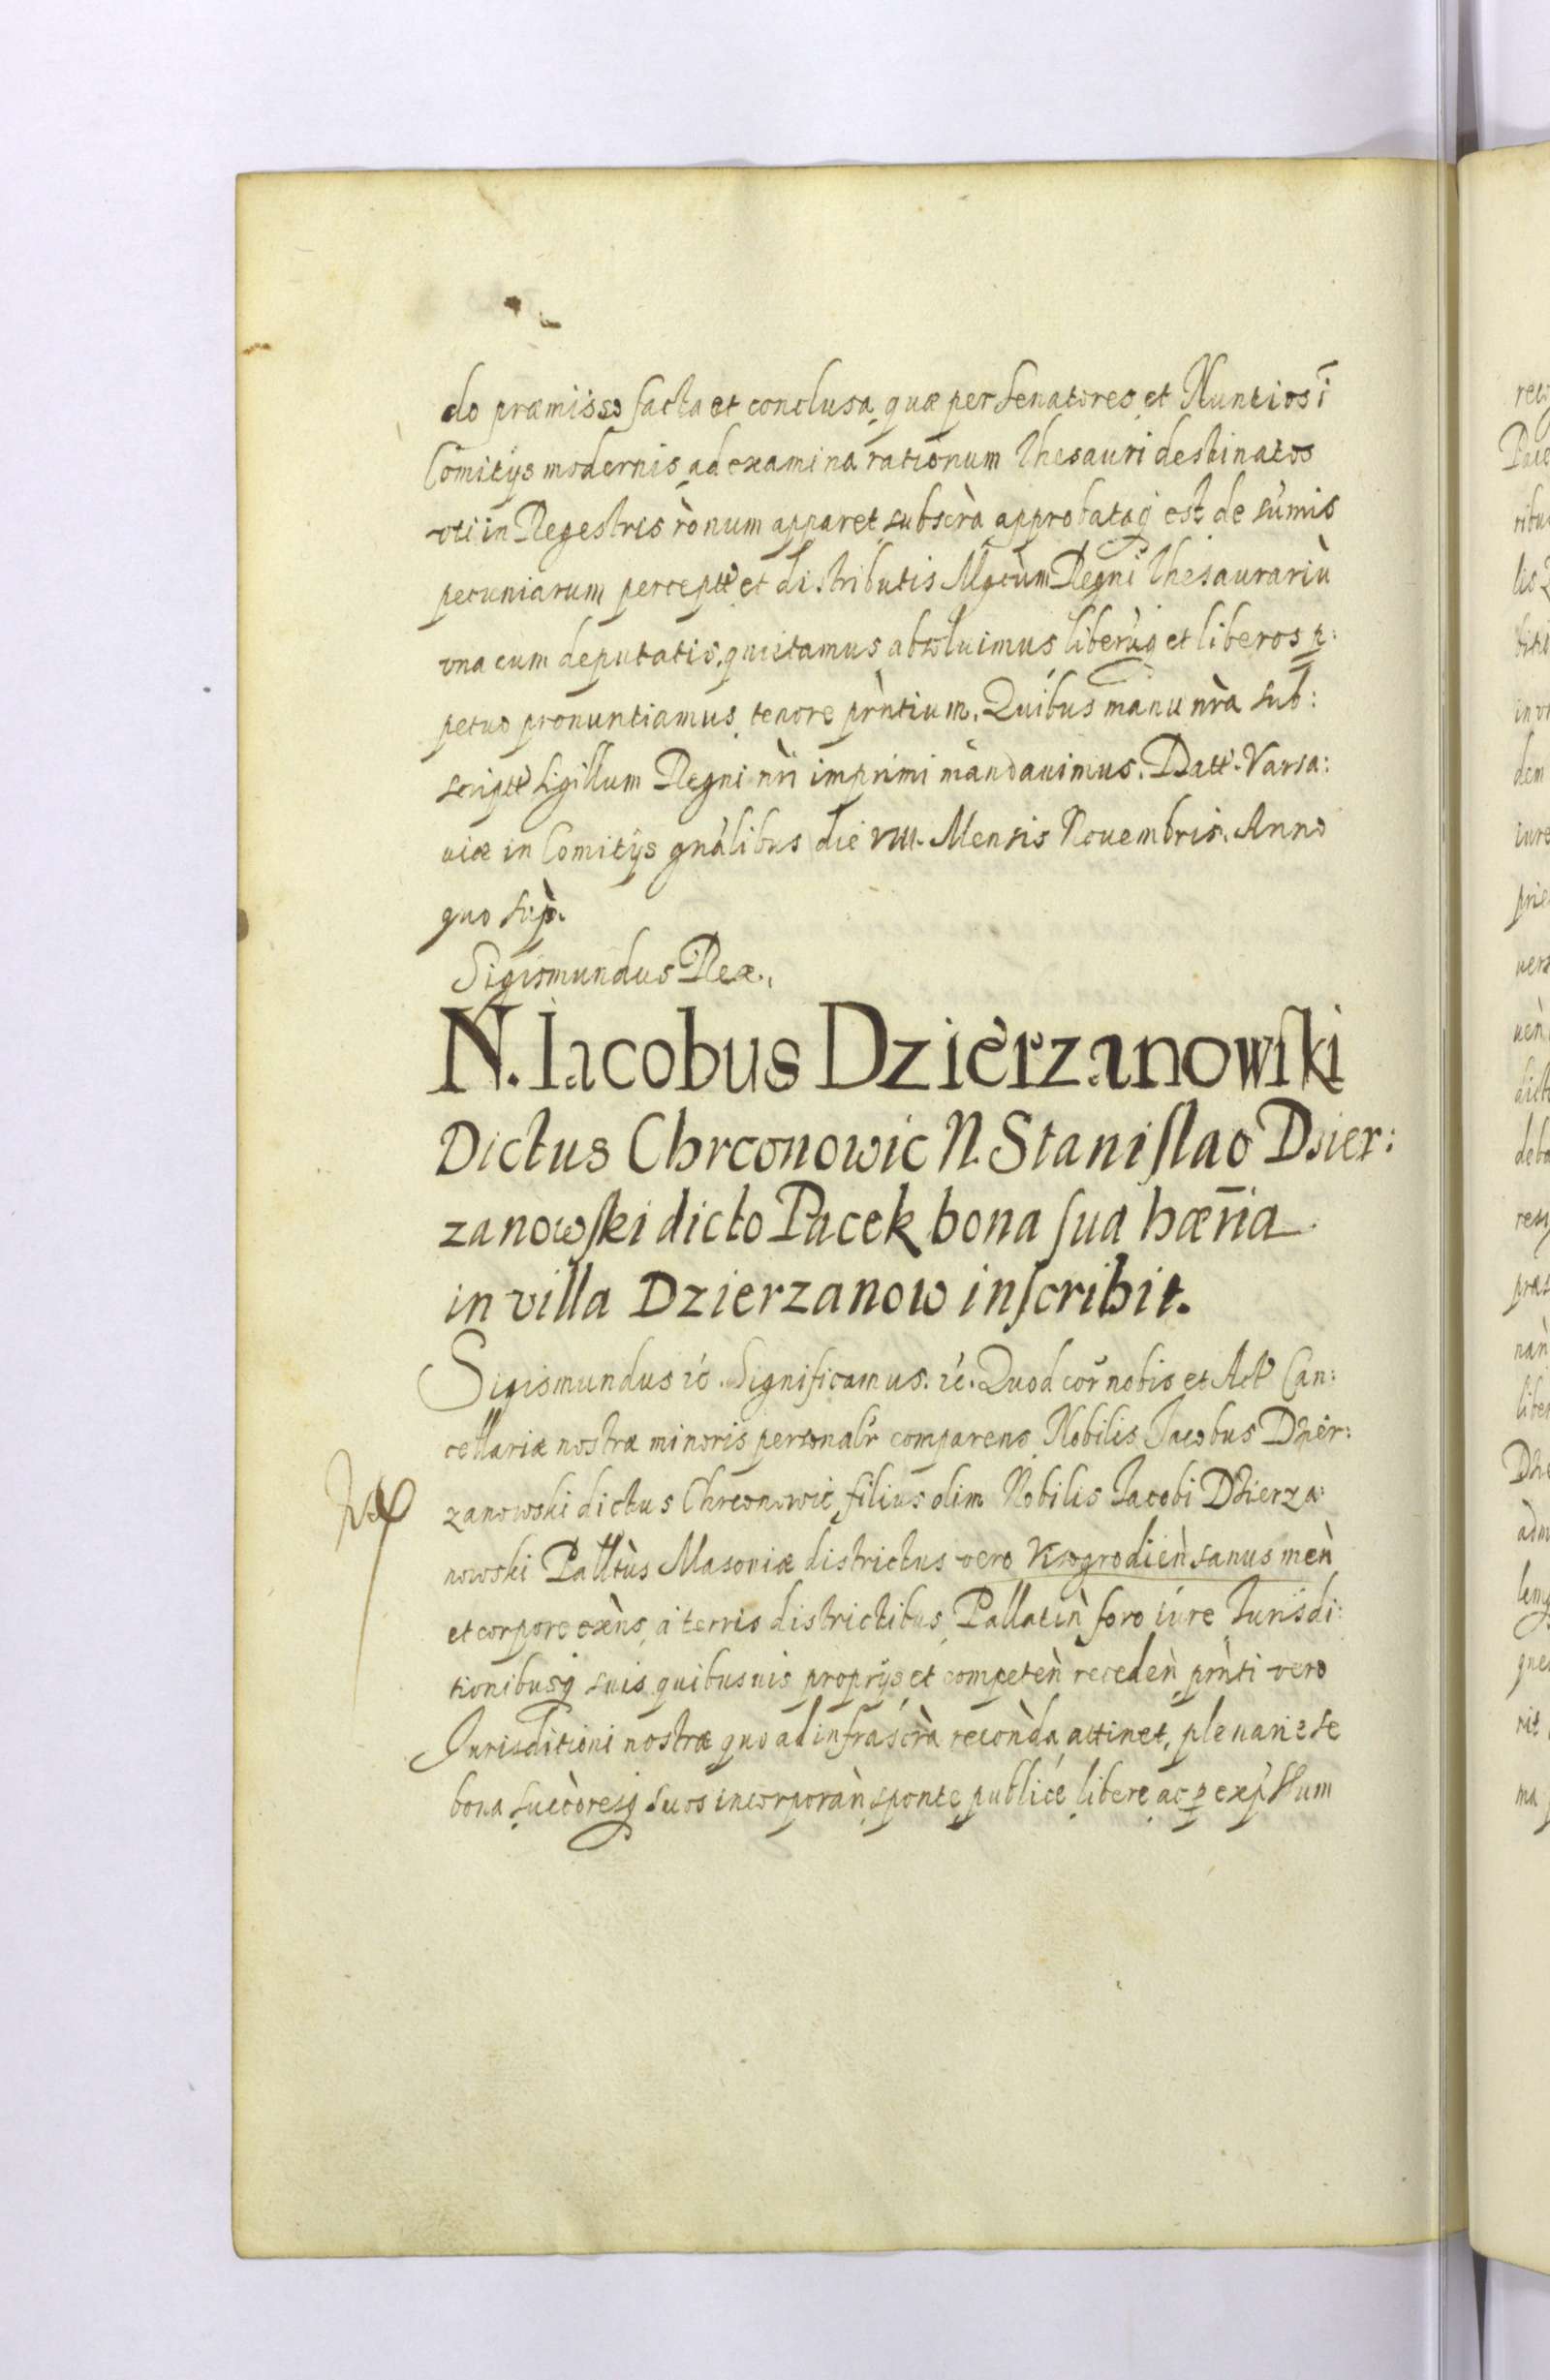 do præmisso facta et conclusa, quæ per Senatores et Nuntios ī
Comitÿs modernis ad examina rationum Thesauri destinatos
vti in Regestris rònum apparet, subscrà approbataq̃ est de sūmis
pecuniarum perceptt et distributis Mgcùm Regni Thesaurariù
vna cum deputatis, quietamus absoluimus liberùq̃ et liberos p:
petuo pronuntiamus, tenore prǹtium. Quibus manu nrà sub:
scriptt Sigillum Regni nri imprimi màndauimus. Datt. Varsa:
uiæ in Comitÿs gnàlibus die VIII. Mensis Nouembris. Anno
quo sup.
Sigismundus Rex.
N. Iacobus Dzierzanowſki
Dictus Chrconowic N. Staniſlao Dsier:
zanowſki dicto Pacek bona ſua hæn̄ia
in villa Dzierzanow inſcribit.
Sigismundus ić. Significamus. ić. Quod cor̃ nobis et Act Can:
cellariæ nostræ minoris personalr̃ comparens Nobilis Jacobus Dzier:
zanowski dictus Chrconowic, filius olim Nobilis Jacobi Dzierza:
nowski Palltùs Masouiæ districtus vero Wyſogrodieǹ sanus meǹ
et corpore exǹs, à terris districtibus, Pallatiǹ foro iùre Jurisdi:
tionibusq̃ suis quibusuis proprÿs et competeǹ recedeǹ, prǹti vero
Jurisditioni nostræ quo ad infrascrà recoǹda attinet, plenarie se
bona succòresq̃ suos incorporàǹ, sponte publicé libere ac p expssum